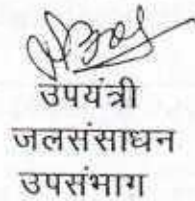 उपयंत्री
जलसंसाधन
उपसंभाग